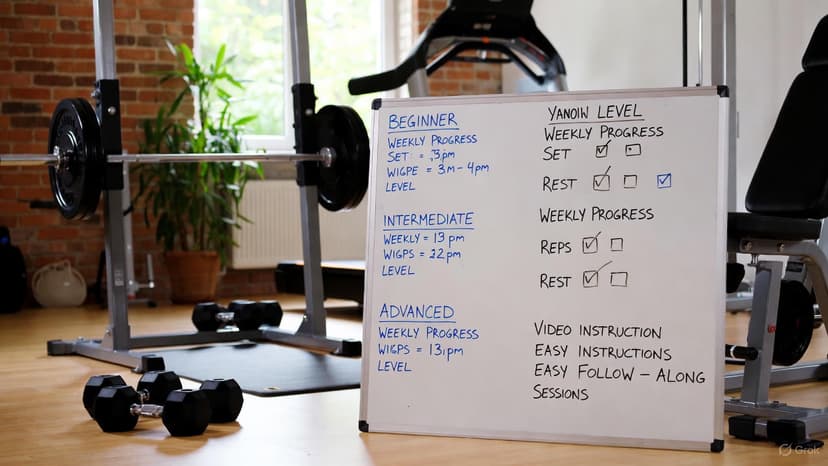 BEGINNER
WEEKLY PROGRESS
SET : = ,3pm
WIGPE = 3M-4pm
LEVEL
INTERMEDIATE
WEEKLY = 13 pm
WIGPS = 22pm
LEVEL
ADVANCED
WEEKLY PROGRESS
WIGPS = 13ıpm
LEVEL
YANOIW LEVEL
WEEKLY PROGRESS
SET
REST
WEEKLY PROGRESS
REPS
REST
VIDEO INSTRUCTION
EASY INSTRUCTIONS
EASY FOLLOW – ALONG
SESSIONS
Grok